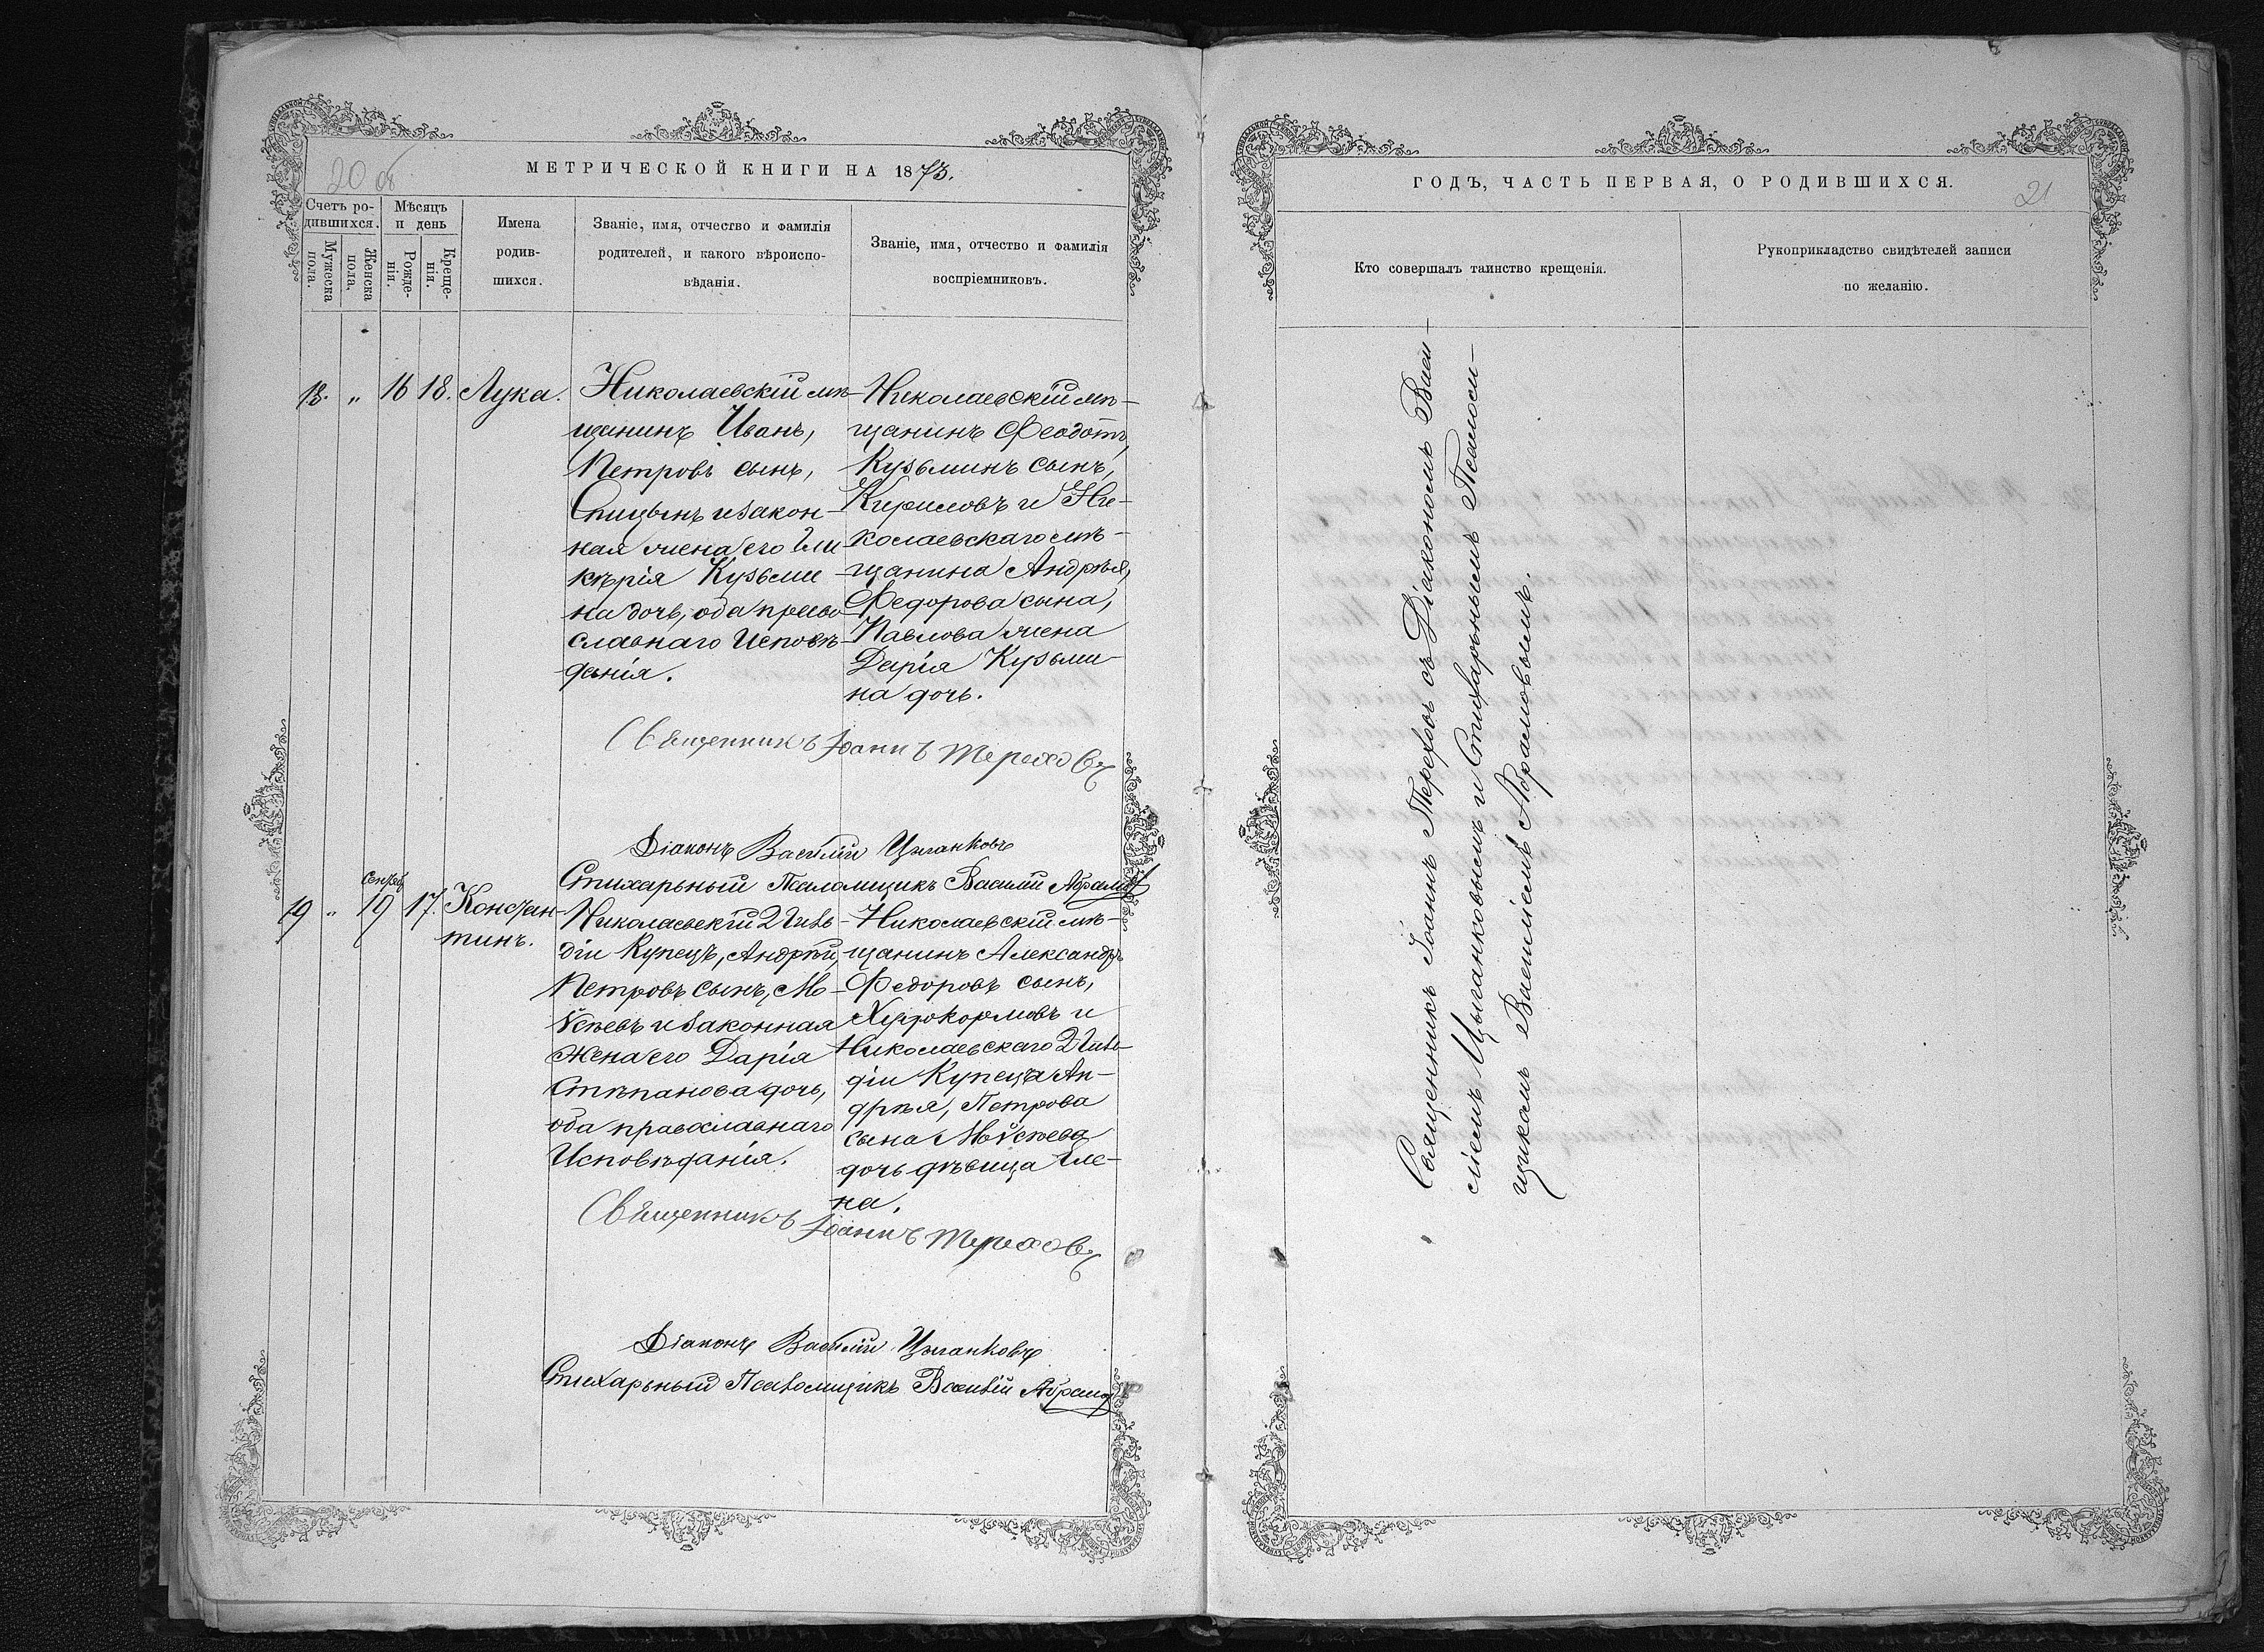 20 об
МЕТРИЧЕСКОЙ КНИГИ НА 1873.
Счетъ ро-
дившихся.
Мужеска
пола.
Женска
пола.
Мѣсяцъ
и день
Рожде-
нія.
Креще-
нія.
Имена
родив-
шихся.
Званіе, имя, отчество и фамилія
родителей, и какого вѣроиспо-
вѣданія.
Званіе, имя, отчество и фамилія
воспріемниковъ.
18. „ 16 18. Лука.
Николаевскій мѣ-
щанинъ Иванъ,
Петровъ сынъ,
Спицынъ и закон-
ная жена его Гли
кѣрія Кузьми-
на дочь, оба право
славнаго Исповѣ-
данія.
Николаевскій мѣ-
щанинъ Феодотъ,
Кузьминъ сынъ,
Кириловъ и Ни-
колаевскаго мѣ-
щанина Андрѣя,
Федорова сына,
Павлова жена
Дарія Кузьми-
на дочь.
Священникъ Іоаннъ Тереховъ
Діаконъ Василій Цыганковъ
Стихарный Псаломщикъ Василій Абрамов
19 „ Сентяб 19 17. Констан-
тинъ.
Николаевскій 2 Гиль-
діи Купецъ, Андрѣй,
Петровъ сынъ, Мо-
ѵсѣевъ и законная
жена его Дарія
Стѣпанова дочь,
оба православнаго
Исповѣданія.
Николаевскій мѣ-
щанинъ Александръ
Федоровъ сынъ,
Худокормовъ и
Николаевскаго 2 Гиль-
діи Купеца Ан-
дрѣя, Петрова
сына Моѵсѣева
дочь дѣвица Еле-
на.
Священникъ Іоаннъ Тереховъ
Діаконъ Василій Цыганковъ
Стихарный Псаломщикъ Василій Абрамов
ГОДЪ, ЧАСТЬ ПЕРВАЯ, О РОДИВШИХСЯ.
21
Кто совершалъ таинство крещенія.
Рукоприкладство свидѣтелей записи
по желанію.
Священникъ Іоаннъ Тереховъ съ Діакономъ Васи-
ліемъ Цыганковымъ и Стихарнымъ Псаломи-
щикамъ Василіемъ Абрамовымъ.